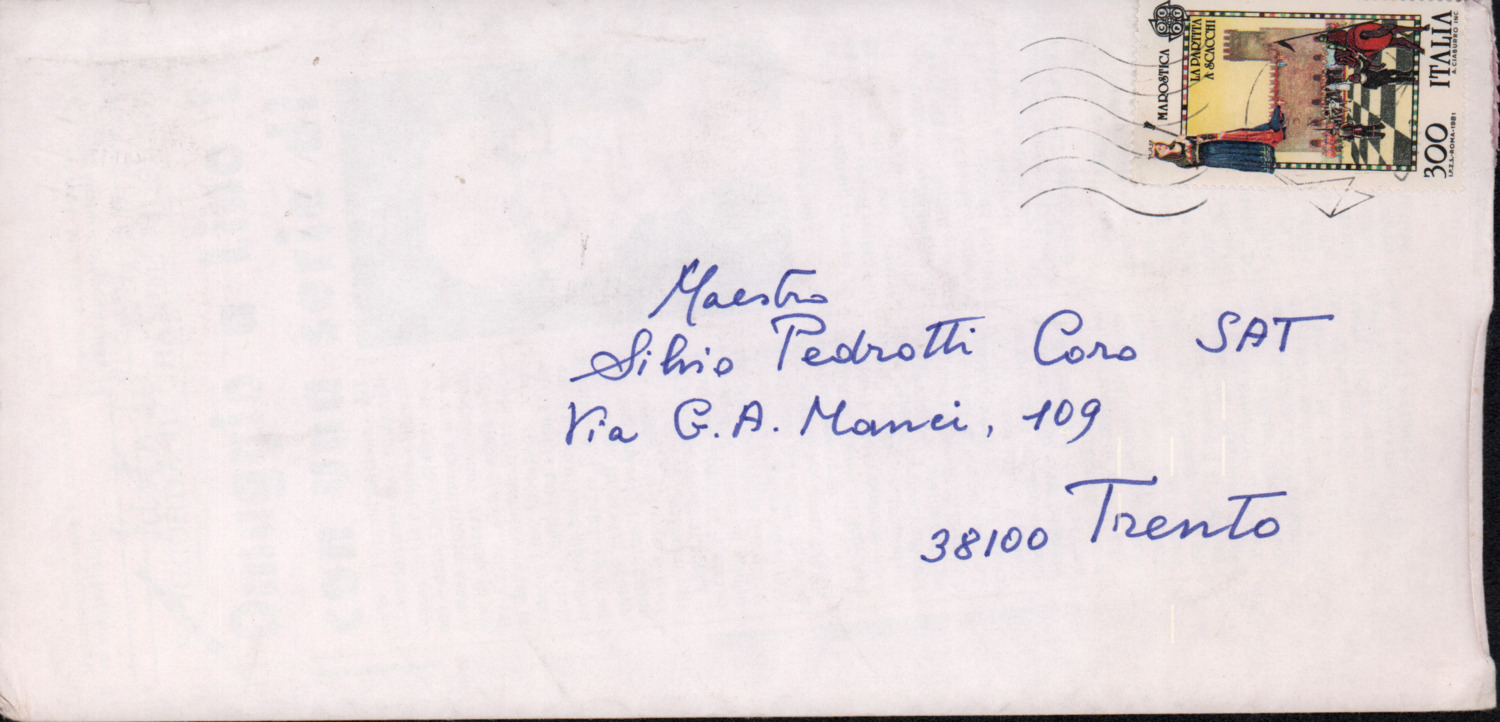 MAROSTICA
LA PARTITA
A SCACCHI
ITALIA
A. CIABURRO INC.
300
I.P.Z.S.-ROMA-1981
Maestro
Silvio Pedrotti Coro SAT
Via G. A. Manci, 109
38100 Trento